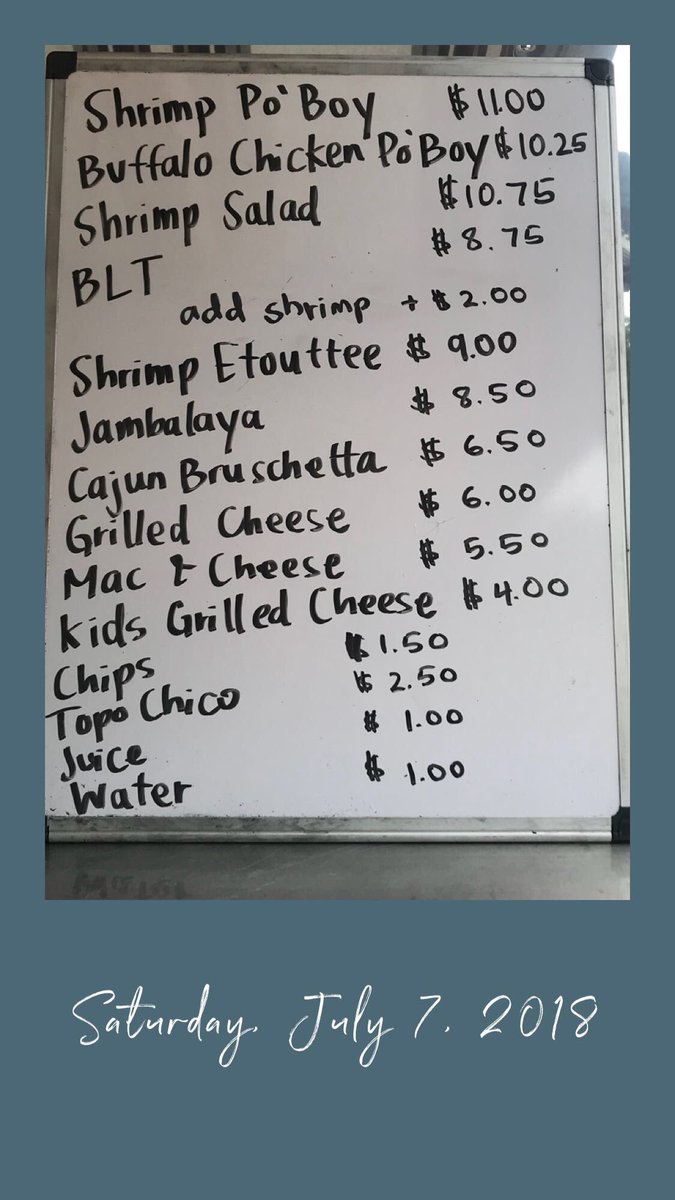 Shrimp Po'Boy $11.00
Buffalo Chicken Po'Boy $10.25
Shrimp Salad $10.75
BLT $8.75
add shrimp + $2.00
Shrimp Etouttee $9.00
Jambalaya $8.50
Cajun Bruschetta $6.50
Grilled Cheese $6.00
Mac & Cheese $5.50
Kids Grilled Cheese $4.00
Chips $1.50
Topo Chico $2.50
Juice $1.00
Water $1.00
Saturday, July 7, 2018